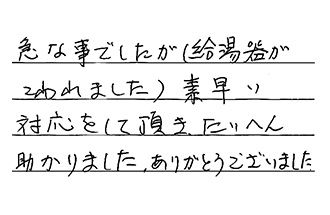 急な事でしたが(給湯器が
こわれました)素早い
対応をして頂き、たいへん
助かりました。ありがとうございました